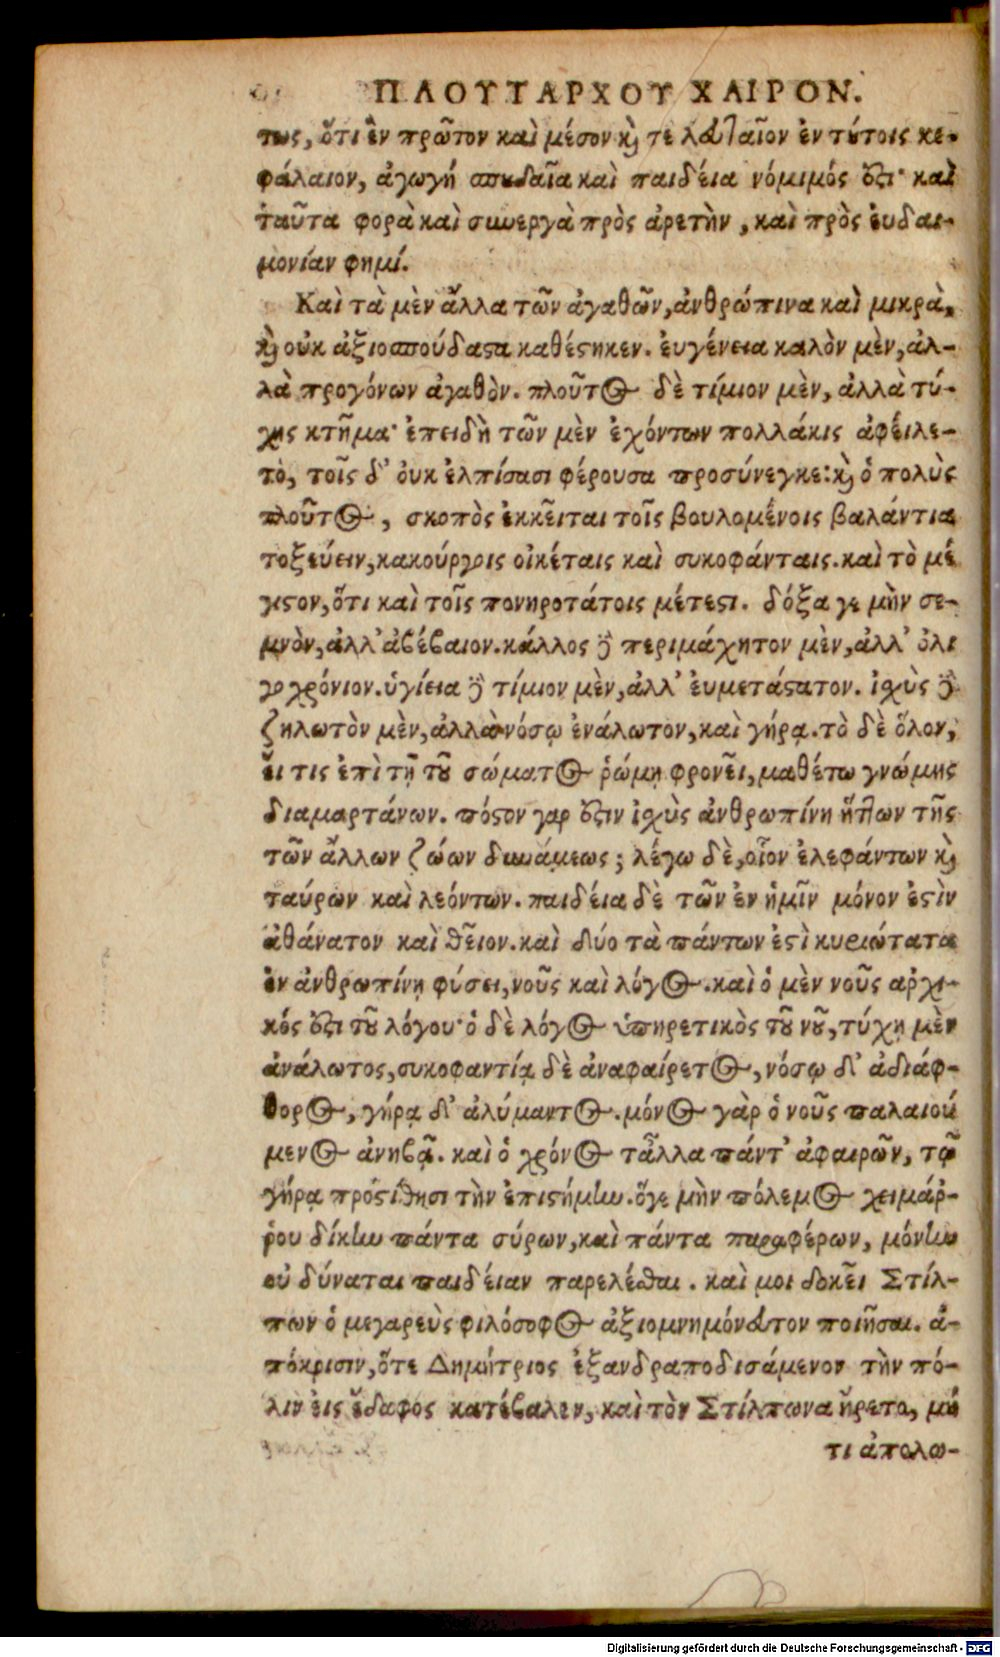 ΠΛΟΥΤΑΡΧΟΥ ΧΑΙΡΟΝ.
τως, ὅτι ἓν πρῶτον καὶ μέσον κὶ τελευταῖον ἐν τούτοις κε-
φάλαιον, ἀγωγή σπουδαῖα καὶ παιδεία νόμιμός ὅςι· καὶ
ταῦτα φορὰ καὶ συνεργὰ πρὸς ἀρετὴν, καὶ πρὸς ἐυδαι-
μονίαν φημί.
Καὶ τὰ μὲν ἄλλα τῶν ἀγαθῶν, ἀνθρώπινα καὶ μικρὰ,
κὶ οὐκ ἀξιοσπούδαςα καθέςηκεν. ἐυγένεια καλὸν μὲν, ἀλ-
λὰ προγόνων ἀγαθὸν. πλοῦτος δὲ τίμιον μὲν, ἀλλὰ τύ-
χης κτῆμα· ἐπειδὴ τῶν μὲν ἐχόντων πολλάκις ἀφείλε-
το, τοῖς δ' ὀυκ ἐλπίσασι φέρουσα προσύνεγκε: κὶ ὁ πολὺς
πλοῦτος, σκοπὸς ἐκκεῖται τοῖς βουλομένοις βαλάντια
τοξεύειν, κακούργοις οἰκέταις καὶ συκοφάνταις. καὶ τὸ μέ
γιςον, ὅτι καὶ τοῖς πονηροτάτοις μέτεςι. δόξα γε μὴν σε-
μνὸν, ἀλλ' ἀβέβαιον. κάλλος δὲ περιμάχητον μὲν, ἀλλ' ὀλι
γοχρόνιον. ὑγίεια δὲ τίμιον μὲν, ἀλλ' ἐυμετάςατον. ἰχὺς δὲ
ζηλωτὸν μὲν, ἀλλὰ νόσῳ ἐνάλωτον, καὶ γήρᾳ. τὸ δὲ ὅλον,
εἴ τις ἐπὶ τῇ τοῦ σώματος ῥώμῃ φρονεῖ, μαθέτω γνώμης
διαμαρτάνων. πόςον γαρ ὅςιν ἰχὺς ἀνθρωπίνη ἥττων τῆς
τῶν ἄλλων ζώων δυνάμεως; λέγω δὲ, οἷον ἐλεφάντων κὶ
ταύρων καὶ λεόντων. παιδεία δὲ τῶν ἐν ἡμῖν μόνον ἐςὶν
ἀθάνατον καὶ θεῖον. καὶ δύο τὰ πάντων ἐςὶ κυριώτατα
ἐν ἀνθρωπίνῃ φύσει, νοῦς καὶ λόγος. καὶ ὁ μὲν νοῦς αρχι-
κός ὅςι τοῦ λόγου· ὁ δὲ λόγος ὑπηρετικὸς τοῦ νοῦ, τύχῃ μὲν
ἀνάλωτος, συκοφαντίᾳ δὲ ἀναφαίρετος, νόσῳ δ' ἀδιάφ-
θορος, γήρᾳ δ' ἀλύμαντος. μόνος γὰρ ὁ νοῦς παλαιού
μενος ἀνηβᾷ. καὶ ὁ χρόνος τἆλλα πάντ' ἀφαιρῶν, τῷ
γήρᾳ προςίθησι τὴν ἐπιςήμην. ὅγε μὴν πόλεμος χειμάρ-
ρου δίκην πάντα σύρων, καὶ πάντα παραφέρων, μόνην
οὐ δύναται παιδείαν παρελέθαι. καὶ μοι δοκεῖ Στίλ-
πων ὁ μεγαρεὺς φιλόσοφος ἀξιομνημόνευτον ποιῆσαι. ἀ-
πόκρισιν, ὅτε Δημήτριος ἐξανδραποδισάμενον τὴν πό-
λιν εἰς ἔδαφος κατέβαλεν, καὶ τὸν Στίλπωνα ἤρετο, μή
τι ἀπολω-
Digitalisierung gefördert durch die Deutsche Forschungsgemeinschaft - DFG